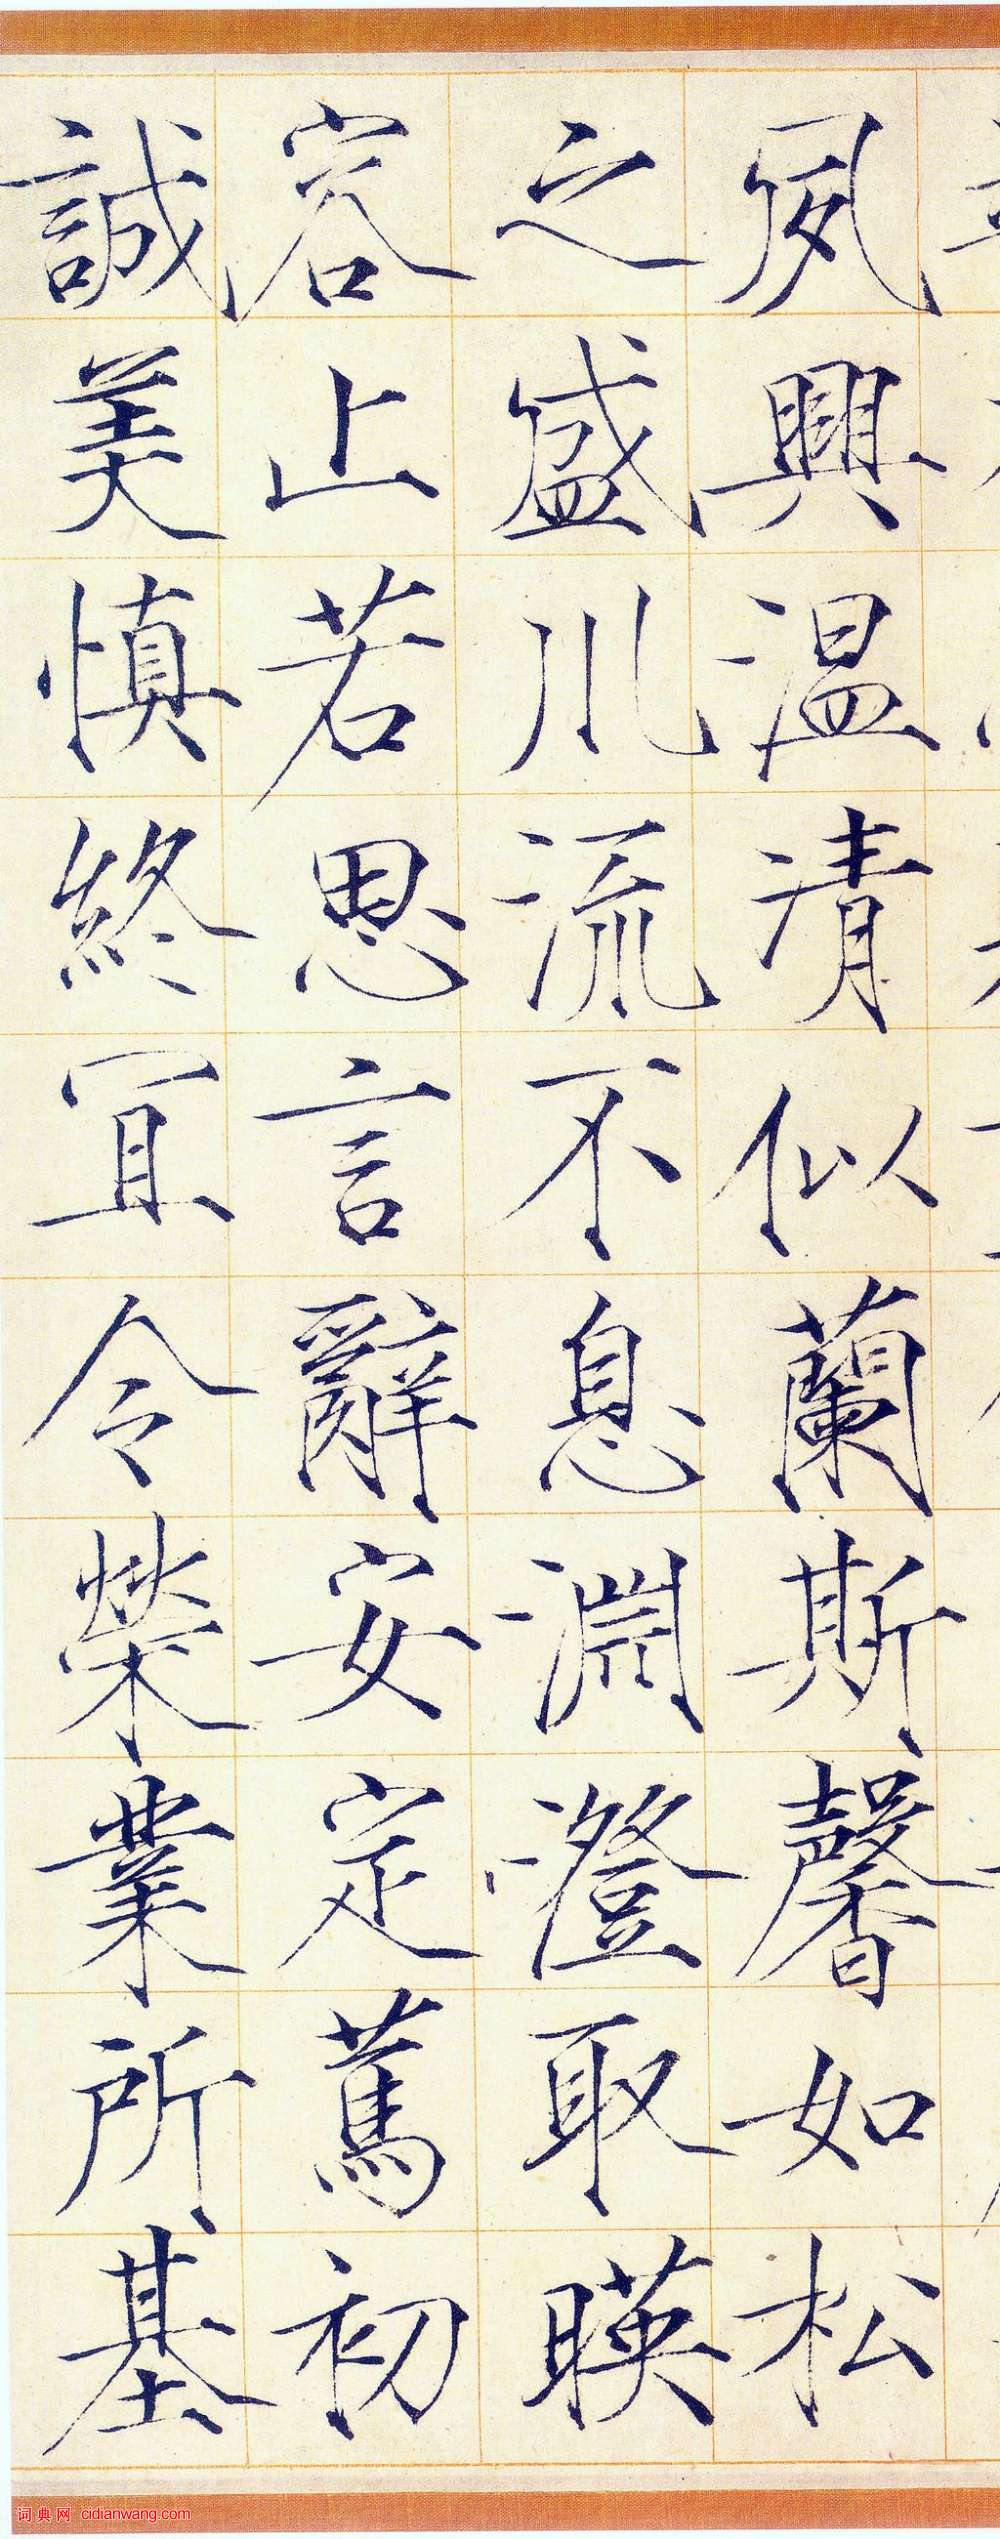 夙興温凊似蘭斯馨如松
之盛川流不息淵澄取暎
容止若思言辭安定篤初
誠美慎終冝令榮業所基
词典网 cidianwang.com